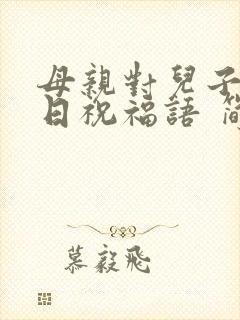 母親對兒子
日祝福語 簡
慕毅飛